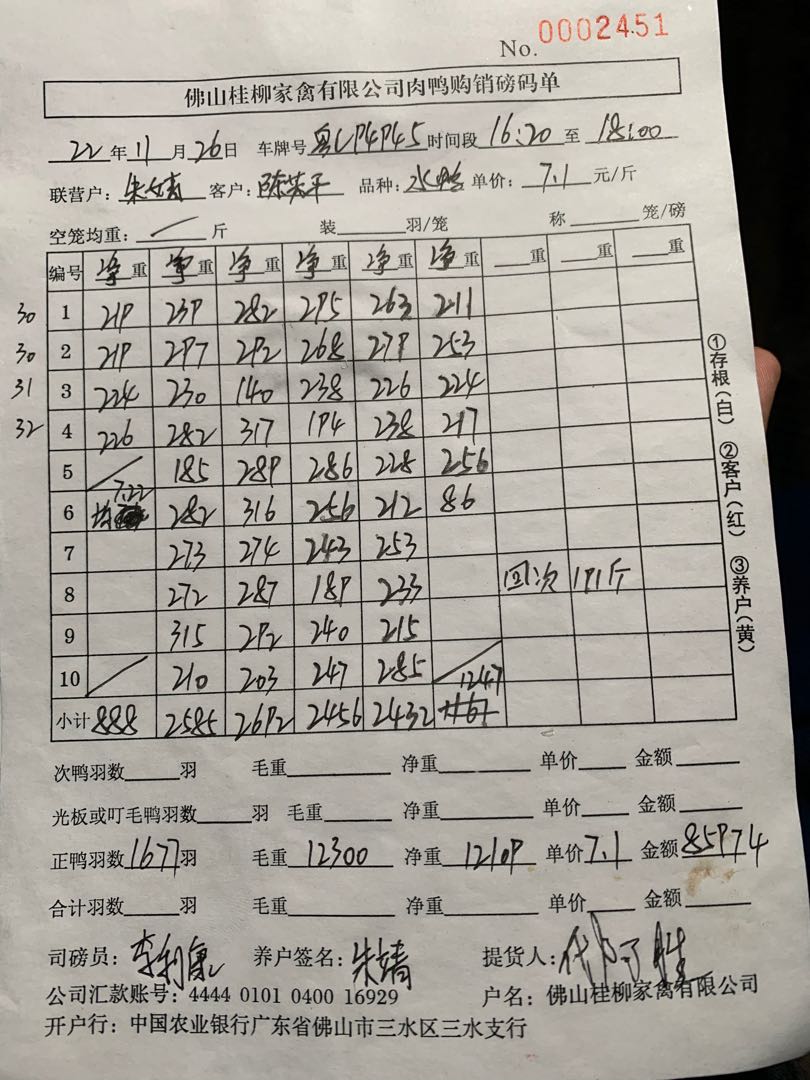 No. 0002451
佛山桂柳家禽有限公司肉鸭购销磅码单
22年11月26日 车牌号粤CP4P45时间段16:20至18:00
联营户:朱 客户:陈英平 品种:水鸭 单价:7.1元/斤
空笼均重:/斤 装 羽/笼 称 笼/磅
编号 净重 净重 净重 净重 净重 净重 重 重 重
30 1 219 239 282 295 263 211
30 2 219 297 292 268 279 253
31 3 224 230 140 238 226 224
32 4 226 282 317 194 238 217
5 / 185 289 286 228 256
6 均7.22 282 316 256 212 86
7 273 274 243 253
8 272 287 189 233 回次 191斤
9 315 292 240 215
10 / 210 203 247 285 /
小计 888 2585 2692 2456 2432 1247
①存根(白) ②客户(红) ③养户(黄)
次鸭羽数 羽 毛重 净重 单价 金额
光板或叮毛鸭羽数 羽 毛重 净重 单价 金额
正鸭羽数1677羽 毛重12300 净重12109 单价7.1 金额85974
合计羽数 羽 毛重 净重 单价 金额
司磅员:李利康 养户签名:朱靖 提货人:
公司汇款账号:4444 0101 0400 16929 户名:佛山桂柳家禽有限公司
开户行:中国农业银行广东省佛山市三水区三水支行